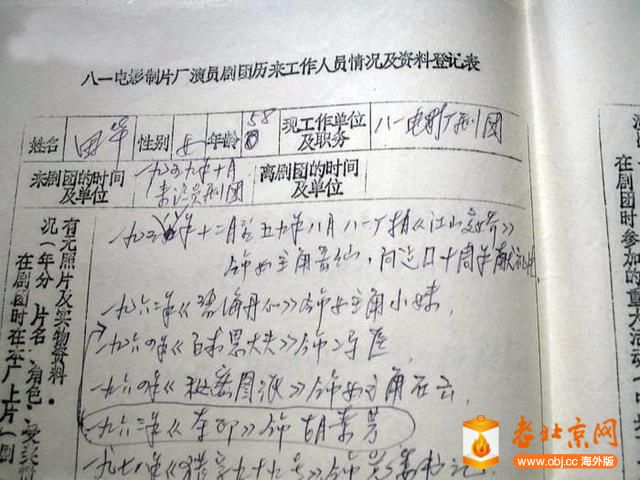 八一电影制片厂演员剧团历来工作人员情况及资料登记表
姓名 田华 性别 女 年龄 58 现工作单位及职务 八一电影厂剧团
来剧团的时间及单位 一九五九年十月来演员剧团 离剧团的时间及单位
有无照片及实物资料
况(年分 片名 角色
在剧团时在
上片
年十二月至五九年八月八一厂拍《江山多娇》
饰女主角岳仙,向建国十周年献礼
一九六二年《碧海丹心》饰女主角小妹,
一九六四年《白求恩大夫》饰冯医
一九六四年《秘密图纸》饰女主角石云
一九六三年《夺印》饰胡素芳
一九七八年《猎字九十九号》饰 书记
在剧团时参加的重大
老北京网
www.obj.cc 海外版